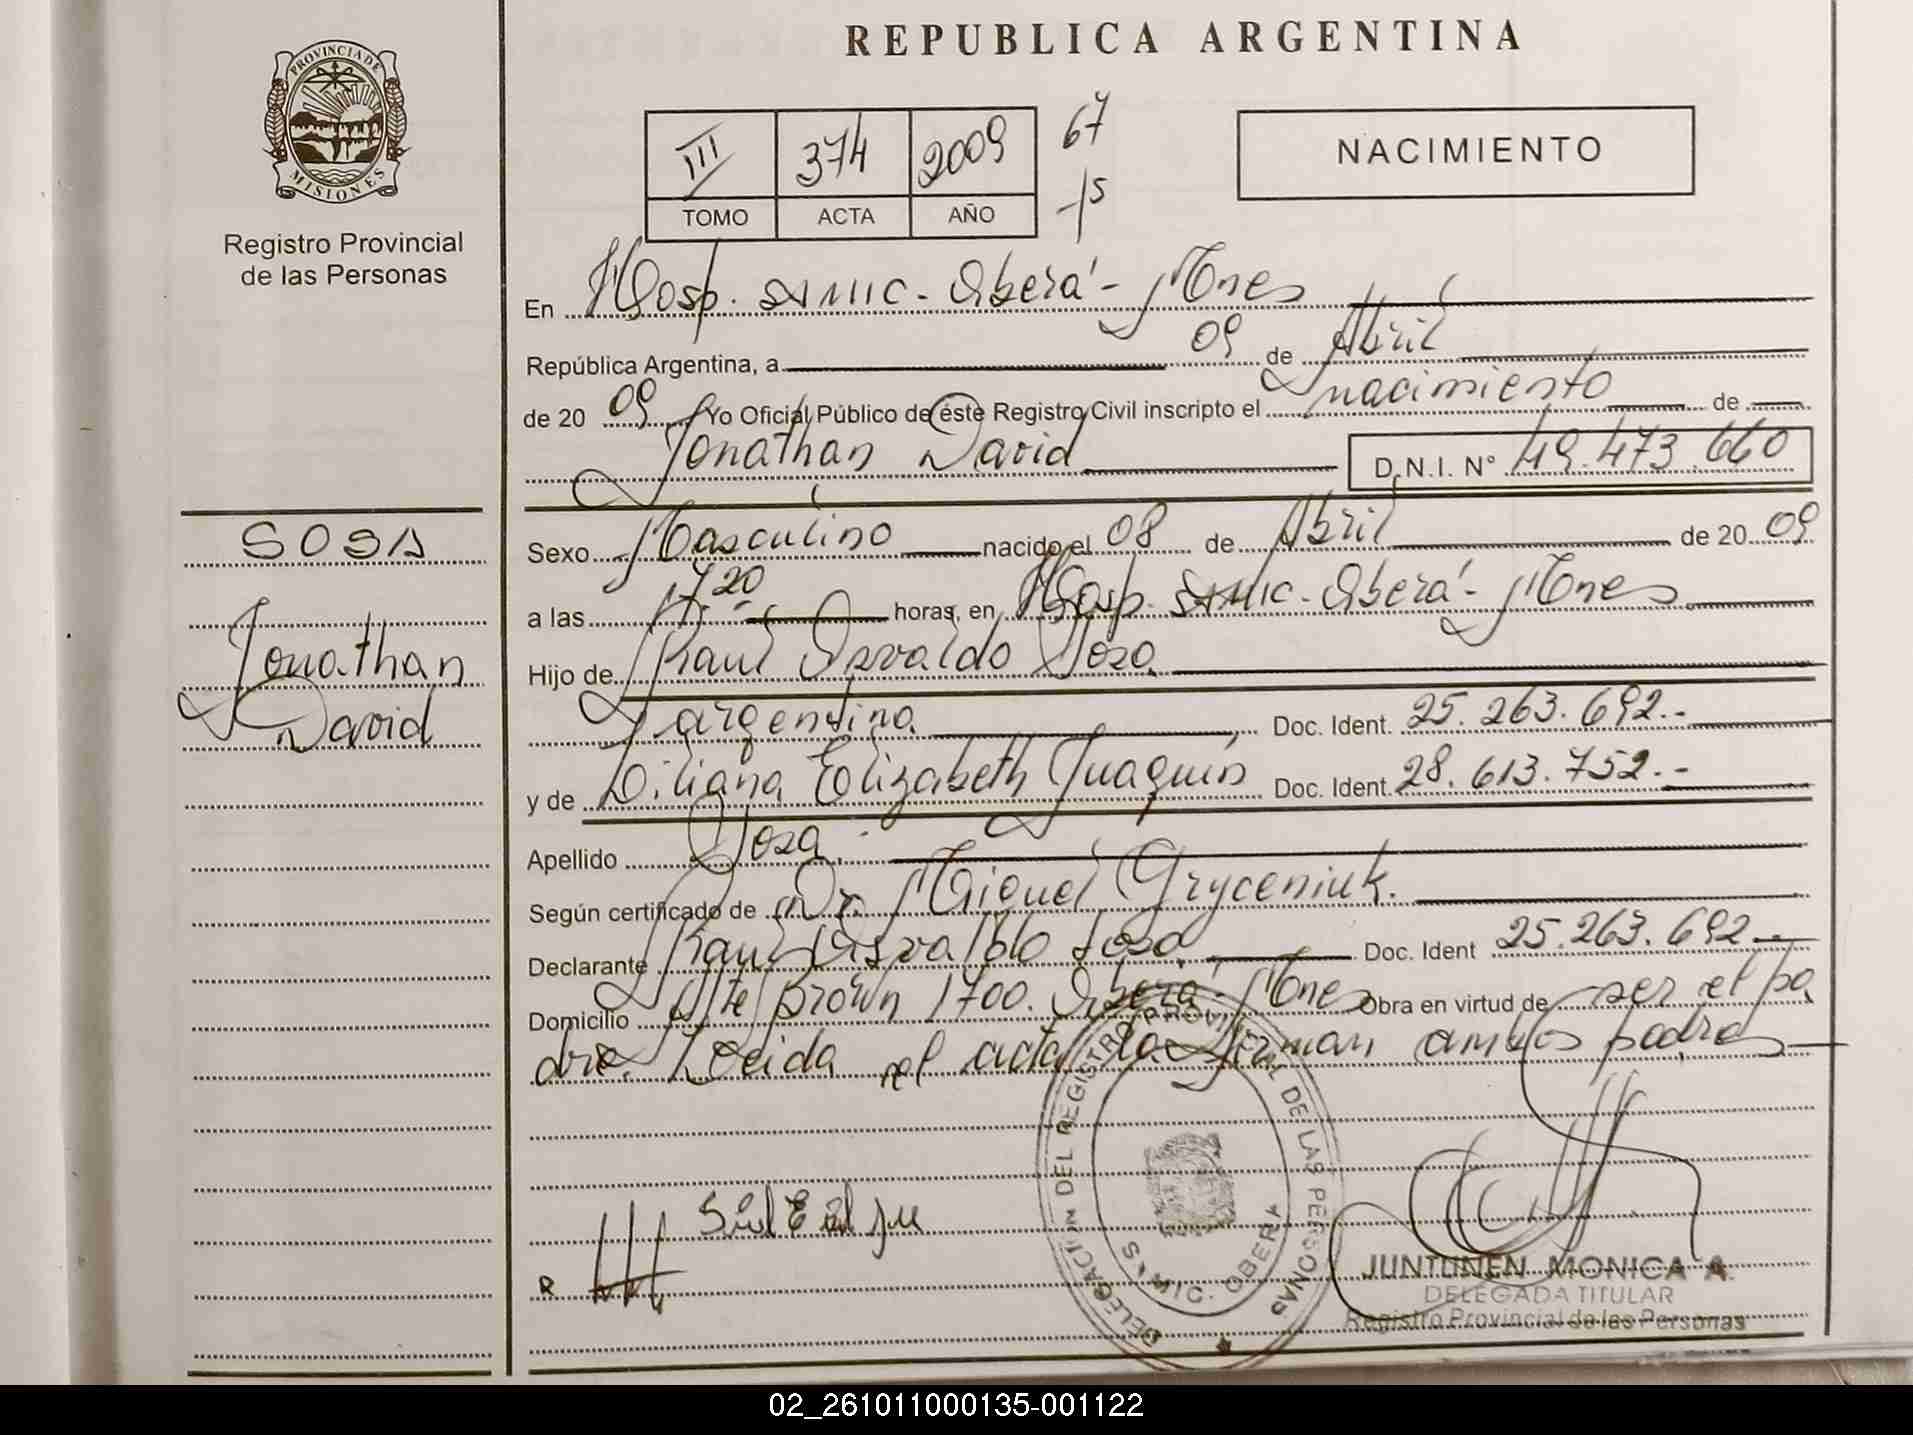 REPUBLICA ARGENTINA
PROVINCIA DE MISIONES
Registro Provincial
de las Personas
III 374 2009 67
TOMO ACTA AÑO
15
NACIMIENTO
En Hosp. SAMIC - Oberá - Mnes
República Argentina, a 09 de Abril
de 20 09 Yo Oficial Público de éste Registro Civil inscripto el nacimiento de
Jonathan David D.N.I. N° 49.473.660
SOSA
Jonathan
David
Sexo Masculino nacido el 08 de Abril de 20 09
a las 17.20 horas, en Hosp. SAMIC - Oberá - Mnes
Hijo de Raul Osvaldo Sosa
argentino Doc. Ident. 25.263.692.-
y de Liliana Elizabeth Juaquin Doc. Ident. 28.613.752.-
Apellido Sosa
Según certificado de Dr. Miguel Gryceniuk.
Declarante Raul Osvaldo Sosa Doc. Ident 25.263.692.-
Domicilio Alte Brown 1700. Oberá - Mnes Obra en virtud de ser el pa
dre. Leida el acta la firman ambos padres
DELEGACION DEL REGISTRO PROVINCIAL DE LAS PERSONAS
SAMIC. OBERA
JUNTUNEN MONICA A.
DELEGADA TITULAR
Registro Provincial de las Personas
02_261011000135-001122